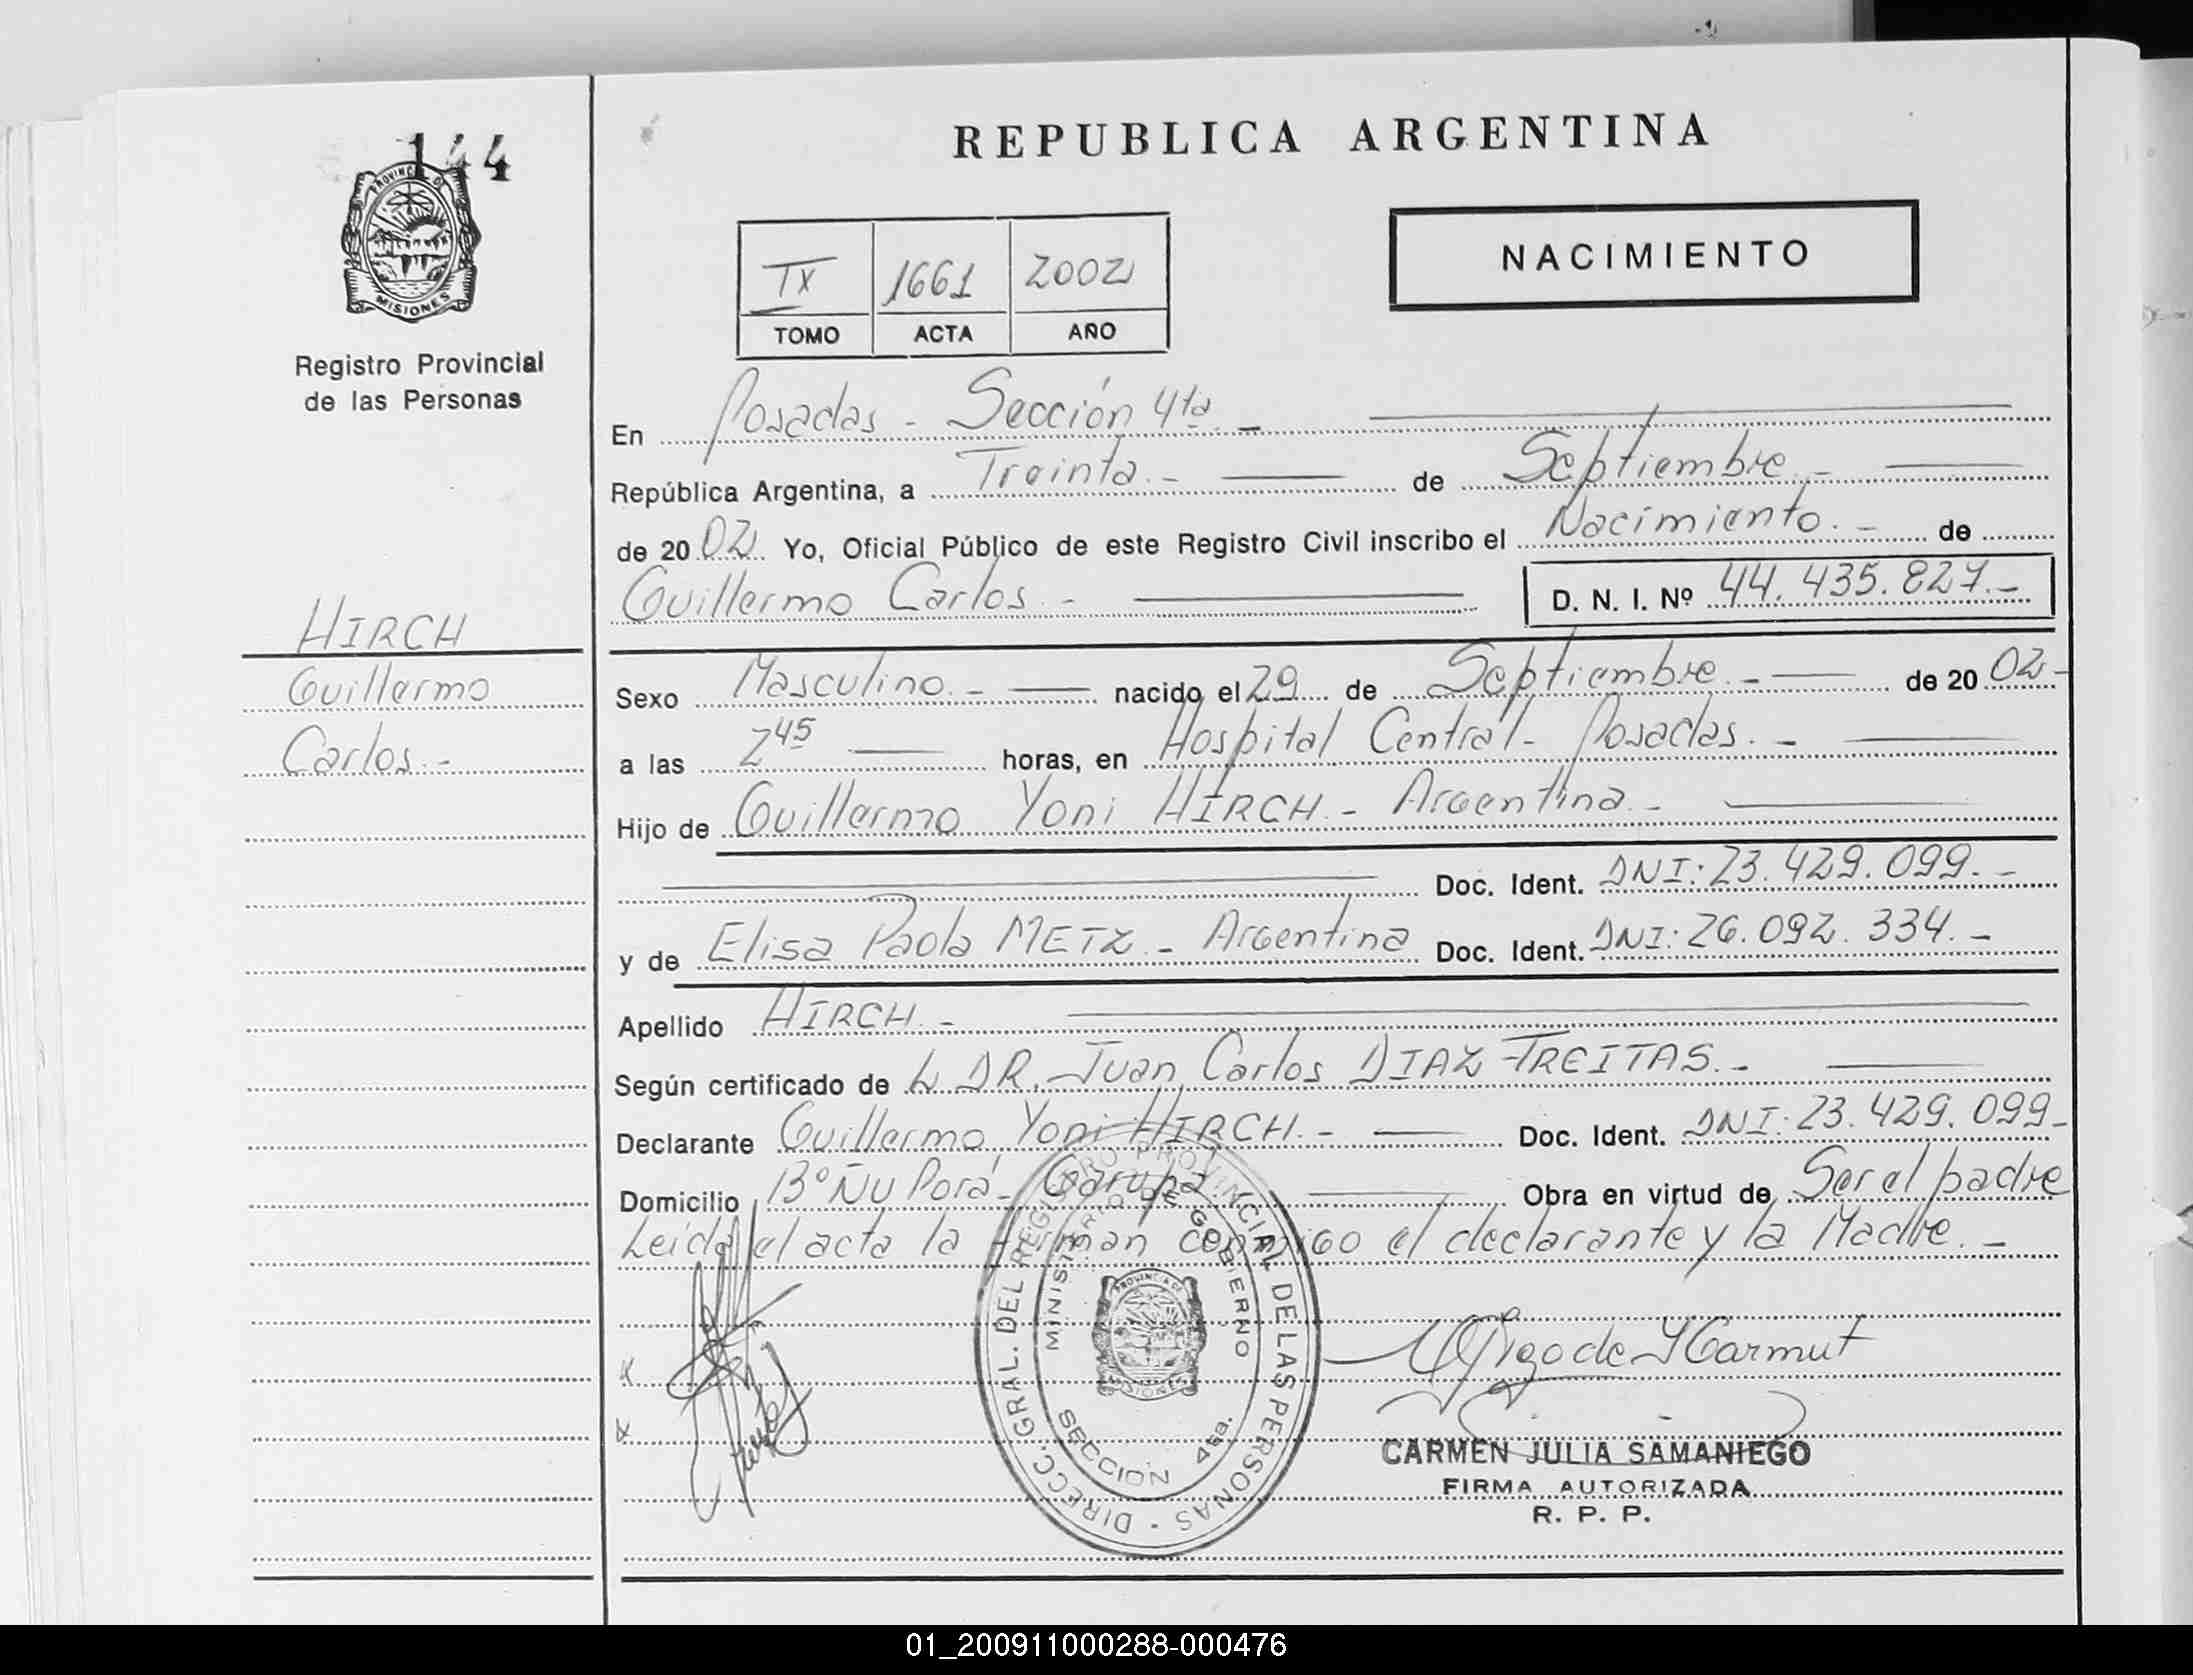 144
PROVINCIA DE
MISIONES
Registro Provincial
de las Personas
HIRCH
Guillermo
Carlos.-
REPUBLICA ARGENTINA
NACIMIENTO
IX 1661 2002
TOMO ACTA AÑO
En Posadas - Sección 4ta.-
República Argentina, a Treinta.- de Septiembre.-
de 2002 Yo, Oficial Público de este Registro Civil inscribo el Nacimiento.- de
Guillermo Carlos.- D. N. I. Nº 44.435.827.-
Sexo Masculino.- nacido el 29 de Septiembre.- de 2002-
a las 2 45 horas, en Hospital Central- Posadas.-
Hijo de Guillermo Yoni HIRCH.- Argentina.-
Doc. Ident. DNI: 23.429.099.-
y de Elisa Paola METZ.- Argentina Doc. Ident. DNI: 26.092.334.-
Apellido HIRCH.-
Según certificado de L DR. Juan Carlos DIAZ FREITAS.-
Declarante Guillermo Yoni HIRCH.- Doc. Ident. DNI: 23.429.099-
Domicilio Bº Ñu Porá- Garupá. Obra en virtud de Ser el padre
Leída el acta la firman conmigo el declarante y la Madre.-
DIRECC. GRAL. DEL REGISTRO PROVINCIAL DE LAS PERSONAS -
MINISTERIO DE GOBIERNO
PROVINCIA DE
MISIONES
SECCION 4ta.
CARMEN JULIA SAMANIEGO
FIRMA AUTORIZADA
R. P. P.
01_200911000288-000476